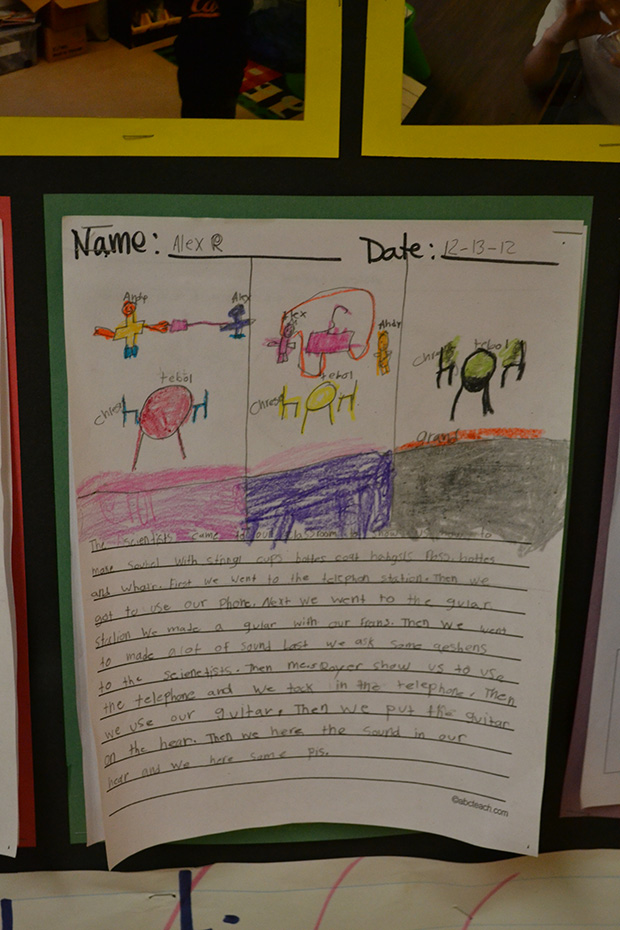 Name: Alex R Date: 12-13-12
Andy Alex
Alex Andy
tebol
tebol
tebol
Chres
Chres
Chres
grand
The scientists came to our classroom to
make sound with strings cups bottes coat bottes
and whair. First we went to the telephon station. Then we
got to use our Phone. Next we went to the gular
station we made a gular with our frans. Then we went
to made alot of sound Last we ask some qeshens
to the scienetists. Then show us to use
the telephone and we tock in the telephone. Then
we use our guitar. Then we put the guitar
on the hear. Then we here the sound in our
hear and we here some pis.
©abcteach.com